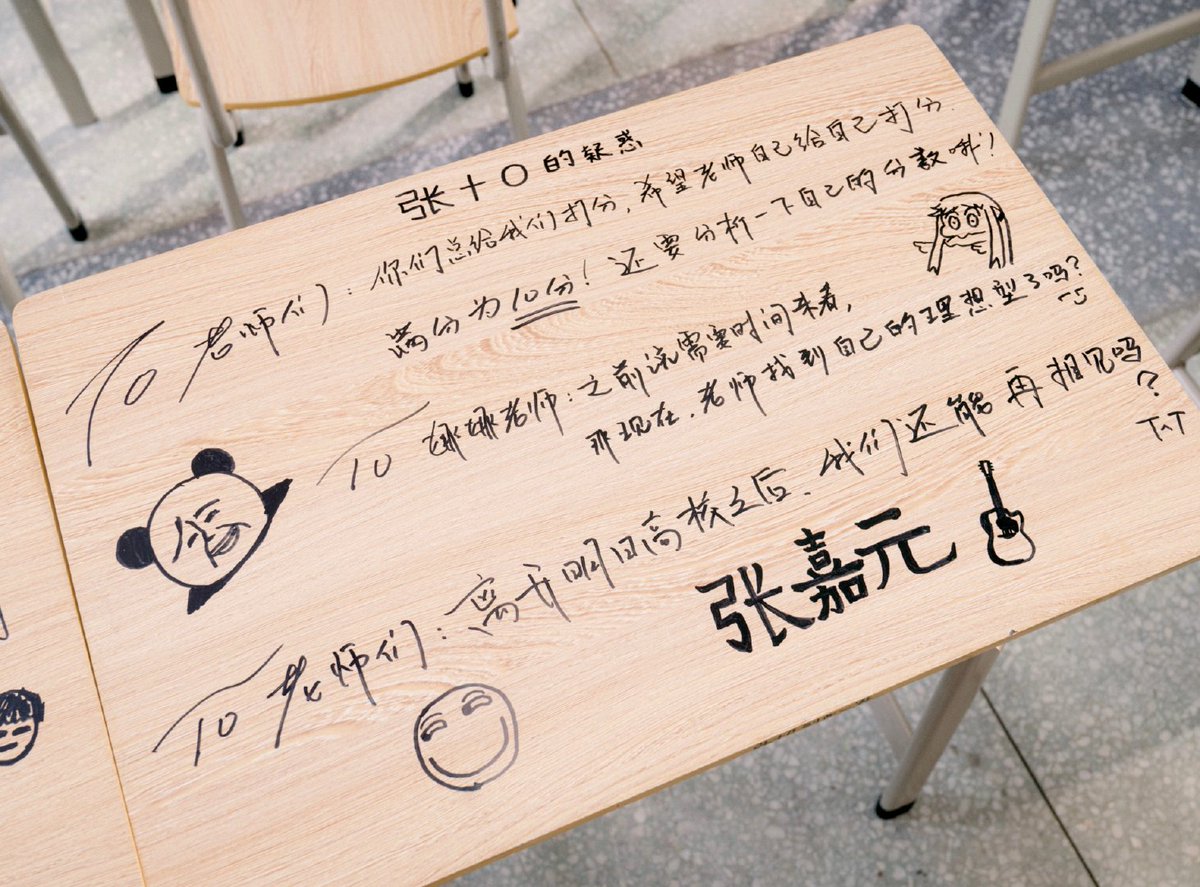 张十〇的疑惑
TO 老师们：你们总给我们打分，希望老师自己给自己打分.
满分为10分！还要分析一下自己的分数哦！
TO 娜娜老师：之前说需要时间来看，
那现在，老师找到自己的理想型了吗？
TO 老师们：离开明日高校之后，我们还能再相见吗？
TAT
张嘉元